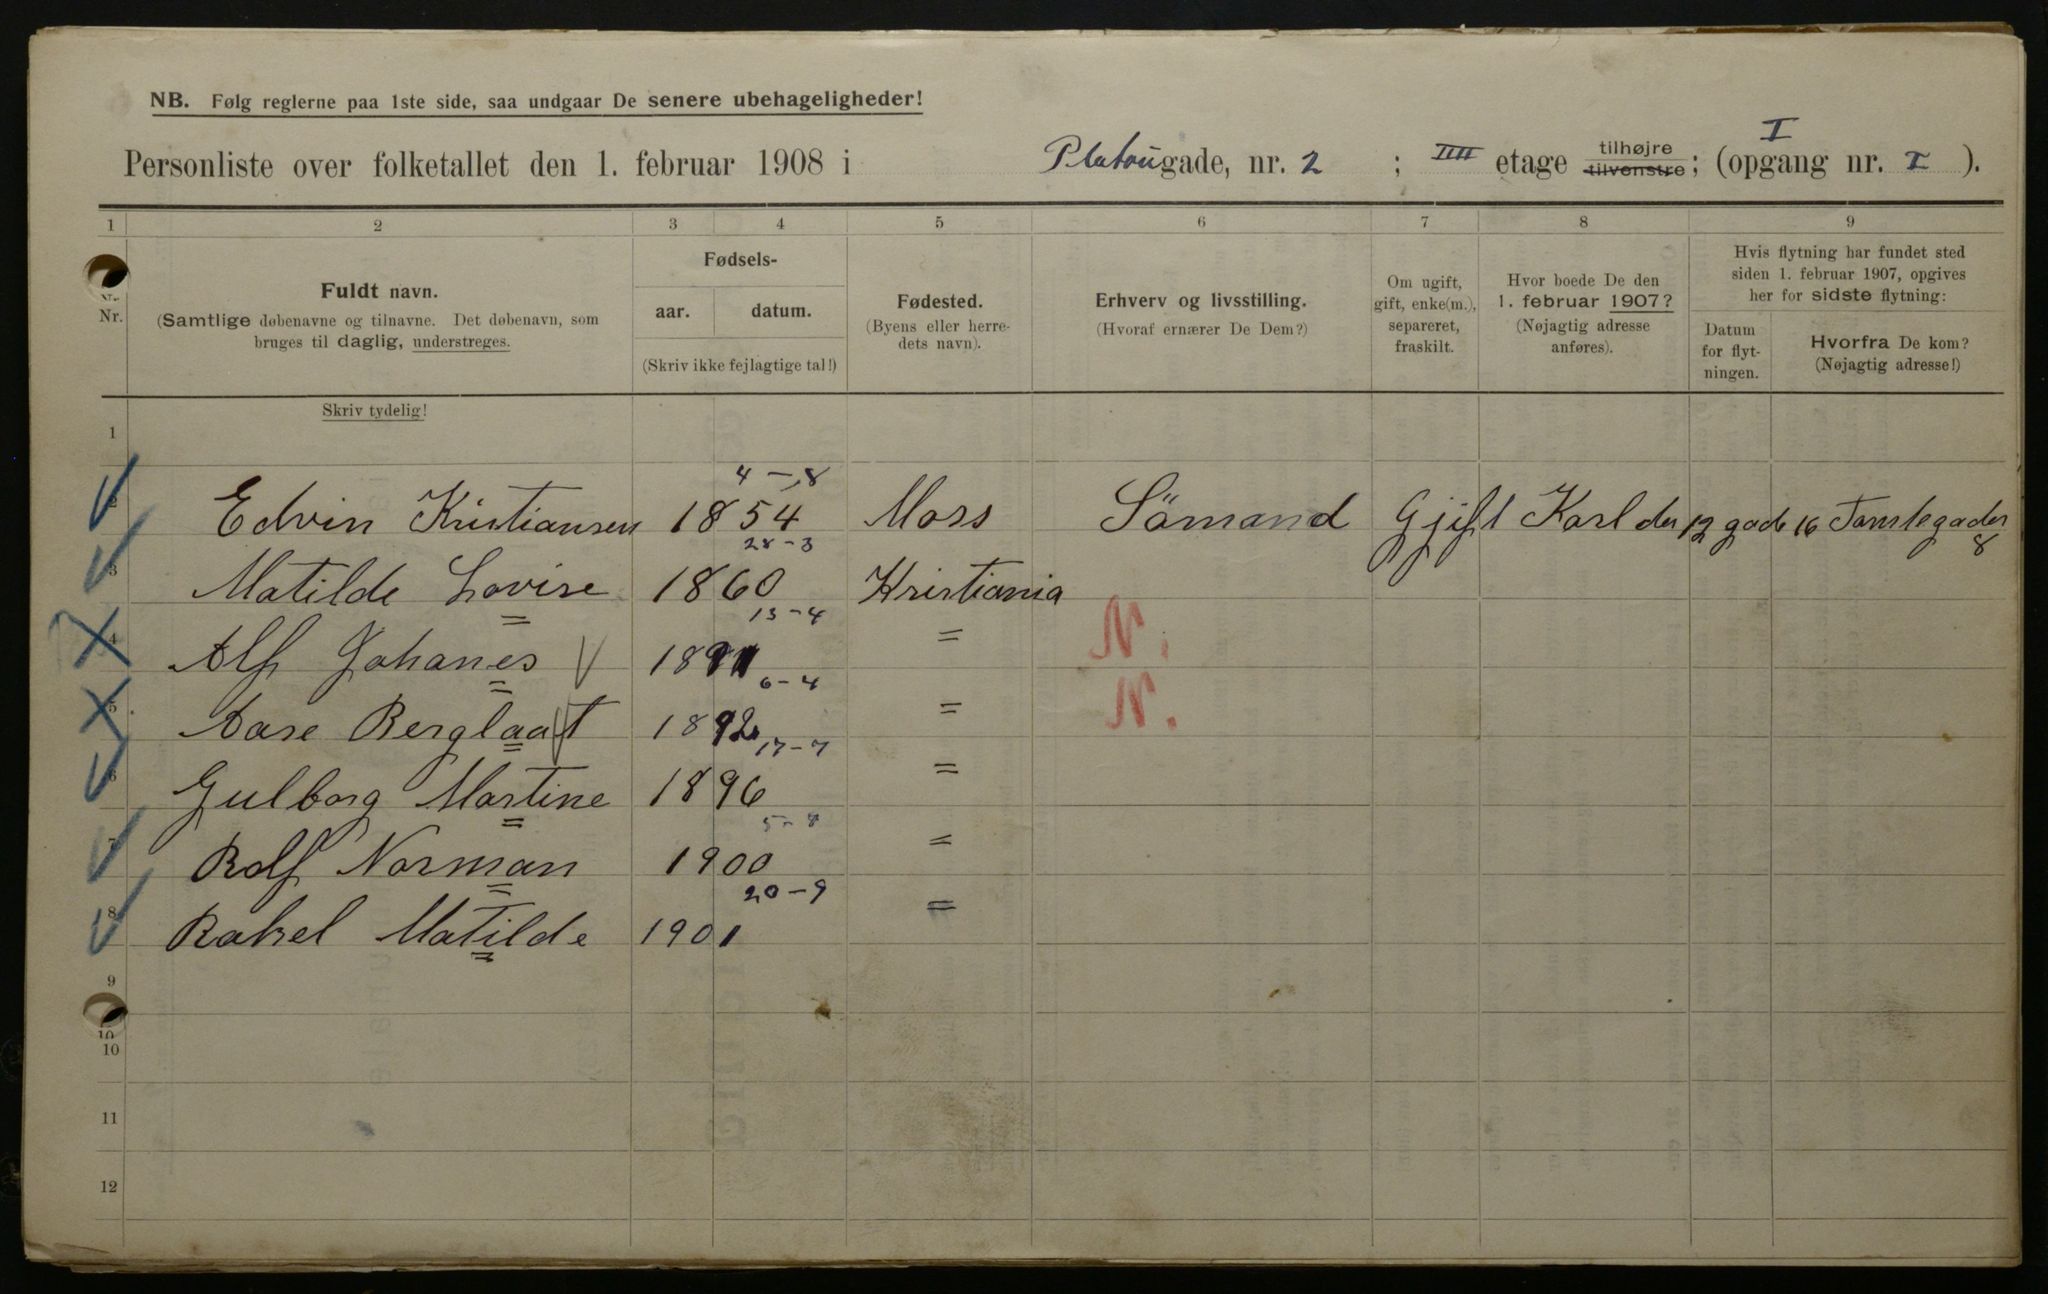 NB. Følg reglerne paa 1ste side, saa undgaar De senere ubehageligheder!
Personliste over folketallet den 1. februar 1908 i Platougade, nr. 2 ; IIII etage tilhøjre tilvenstre; (opgang nr. I I ).
1 2 3 4 5 6 7 8 9
Nr.
Fuldt navn.
(Samtlige døbenavne og tilnavne. Det døbenavn, som
bruges til daglig, understreges.
Fødsels-
aar. datum.
(Skriv ikke fejlagtige tal!)
Fødested.
(Byens eller herre-
dets navn).
Erhverv og livsstilling.
(Hvoraf ernærer De Dem?)
Om ugift,
gift, enke(m.),
separeret,
fraskilt.
Hvor boede De den
1. februar 1907?
(Nøjagtig adresse
anføres).
Hvis flytning har fundet sted
siden 1. februar 1907, opgives
her for sidste flytning:
Datum
for flyt-
ningen.
Hvorfra De kom?
(Nøjagtig adresse!)
Skriv tydelig!
1
4-8
2 Edvin Kristiansen 1854 Moss Sömand Gjift Karl der 12 gade 16 Tomtegaden 8
28-3
3 Matilde Lovise 1860 Kristiania
13-4
4 Alf Johanes V 1891 = N.
6-4
5 Aase Berglaat 1892 = N.
17-7
6 Gulborg Martine 1896 =
5-8
7 Rolf Norman 1900 =
20-9
8 Rakel Matilde 1901 =
9
10
10
11
12